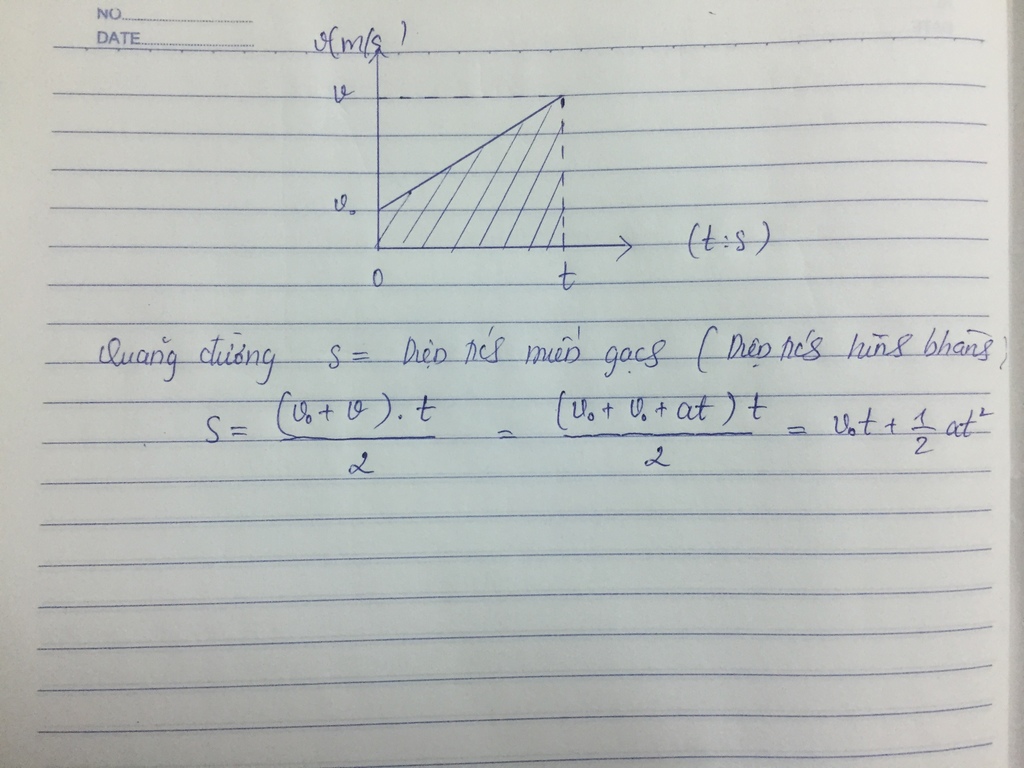 NO
DATE
v(m/s)
v
v₀
(t:s)
0 t
Quãng đường s = Diện tích miền gạch (Diện tích hình thang)
S = (v₀ + v) . t / 2 = (v₀ + v₀ + at) t / 2 = v₀t + 1/2 at²